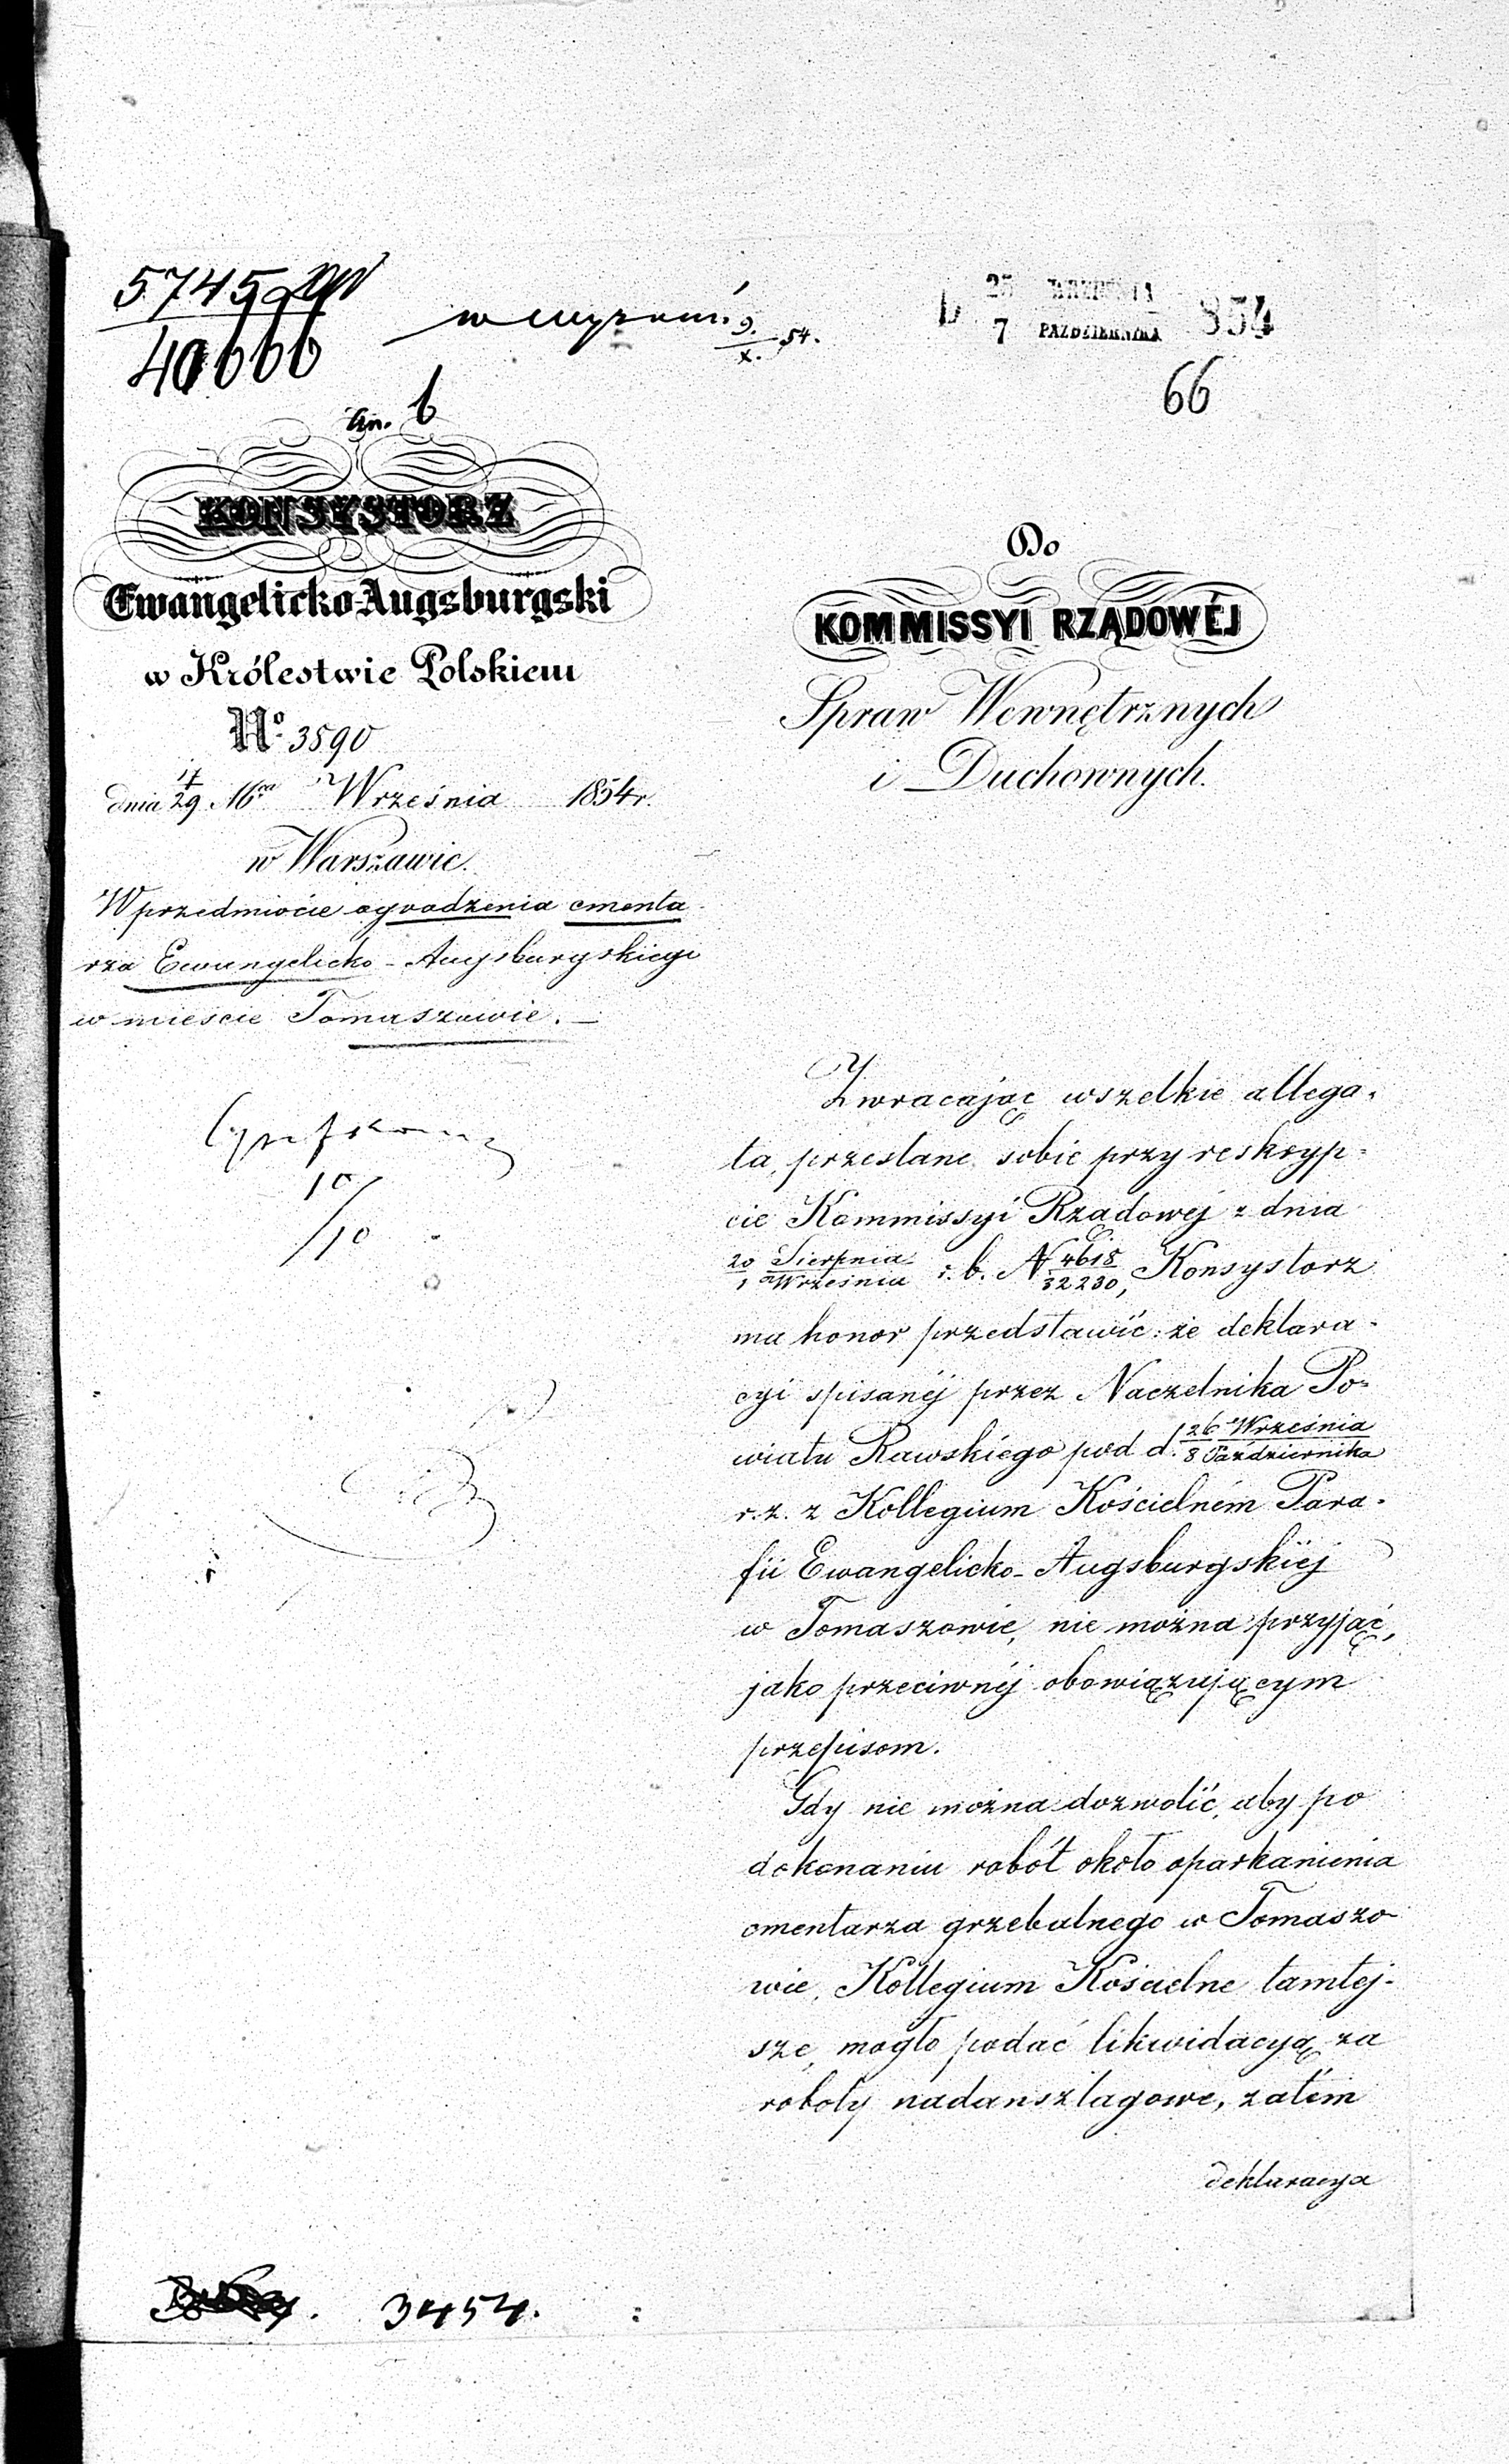 5745
40666
9./X. 54.
25 WRZEŚNIA
7 PAZDZIERNIKA 854
66
KONSYSTORZ
Ewangelicko Augsburgski
w Królestwie Polskiem
No 3590
dnia 17/29 Mca Września 1854 r.
w Warszawie.
W przedmiocie ogrodzenia cmenta
rza Ewangelicko-Augsburgskiego
w mieście Tomaszowie.
10/10
Do
KOMMISSYI RZĄDOWÉJ
Spraw Wewnętrznych
i Duchownych.
Zwracając wszelkie allega-
ta, przesłane sobie przy reskryp=
cie Kommissyi Rządowéj z dnia
20 Sierpnia/1 Września r.b. N 4618/32230, Konsystorz
ma honor przedstawić: że deklara-
cyi spisanéj przez Naczelnika Po=
wiatu Rawskiego pod d. 26 Września/8 Października
r.z. z Kollegium Kościelném Para-
fii Ewangelicko-Augsburgskiéj
w Tomaszowie, nie można przyjąć,
jako przeciwnéj obowiązującym
przepisom.
Gdy nie można dozwolić, aby po
dokonaniu robót około oparkanienia
cmentarza grzebalnego w Tomaszo-
wie, Kollegium Kościelne tamtej-
sze, mogło podać likwidacyą za
roboty nadanszlagowe, zatém
deklaracya
3454.